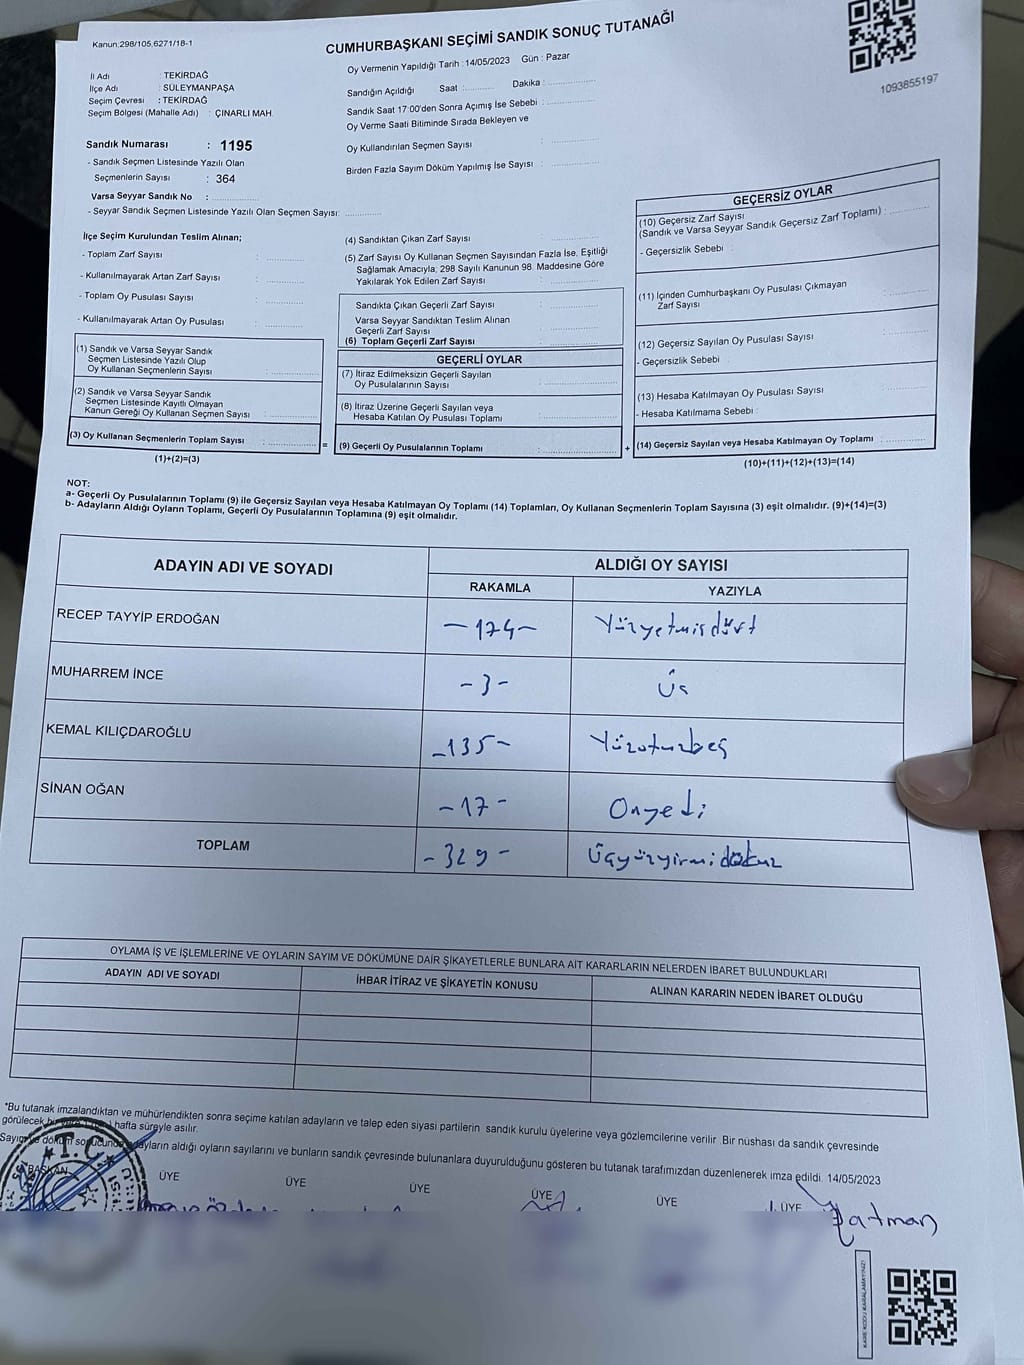 Kanun;298/105,6271/18-1
CUMHURBAŞKANI SEÇİMİ SANDIK SONUÇ TUTANAĞI
1093855197
İl Adı : TEKİRDAĞ
İlçe Adı : SÜLEYMANPAŞA
Seçim Çevresi : TEKİRDAĞ
Seçim Bölgesi (Mahalle Adı) : ÇINARLI MAH.
Sandık Numarası : 1195
- Sandık Seçmen Listesinde Yazılı Olan
Seçmenlerin Sayısı : 364
Varsa Seyyar Sandık No :
- Seyyar Sandık Seçmen Listesinde Yazılı Olan Seçmen Sayısı:
Oy Vermenin Yapıldığı Tarih :14/05/2023 Gün : Pazar
Sandığın Açıldığı Saat : Dakika :
Sandık Saat 17:00'den Sonra Açımış İse Sebebi :
Oy Verme Saati Bitiminde Sırada Bekleyen ve
Oy Kullandırılan Seçmen Sayısı :
Birden Fazla Sayım Döküm Yapılmış İse Sayısı :
İlçe Seçim Kurulundan Teslim Alınan;
- Toplam Zarf Sayısı :
- Kullanılmayarak Artan Zarf Sayısı :
- Toplam Oy Pusulası Sayısı :
- Kullanılmayarak Artan Oy Pusulası :
(1) Sandık ve Varsa Seyyar Sandık
Seçmen Listesinde Yazılı Olup
Oy Kullanan Seçmenlerin Sayısı :
(2) Sandık ve Varsa Seyyar Sandık
Seçmen Listesinde Kayıtlı Olmayan
Kanun Gereği Oy Kullanan Seçmen Sayısı :
(3) Oy Kullanan Seçmenlerin Toplam Sayısı :
(1)+(2)=(3)
=
(4) Sandıktan Çıkan Zarf Sayısı
(5) Zarf Sayısı Oy Kullanan Seçmen Sayısından Fazla İse, Eşitliği
Sağlamak Amacıyla; 298 Sayılı Kanunun 98. Maddesine Göre
Yakılarak Yok Edilen Zarf Sayısı :
Sandıkta Çıkan Geçerli Zarf Sayısı :
Varsa Seyyar Sandıktan Teslim Alınan
Geçerli Zarf Sayısı :
(6) Toplam Geçerli Zarf Sayısı :
GEÇERLİ OYLAR
(7) İtiraz Edilmeksizin Geçerli Sayılan
Oy Pusulalarının Sayısı :
(8) İtiraz Üzerine Geçerli Sayılan veya
Hesaba Katılan Oy Pusulası Toplamı :
(9) Geçerli Oy Pusulalarının Toplamı :
+
GEÇERSİZ OYLAR
(10) Geçersiz Zarf Sayısı
(Sandık ve Varsa Seyyar Sandık Geçersiz Zarf Toplamı) :
- Geçersizlik Sebebi :
(11) İçinden Cumhurbaşkanı Oy Pusulası Çıkmayan
Zarf Sayısı :
(12) Geçersiz Sayılan Oy Pusulası Sayısı :
- Geçersizlik Sebebi :
(13) Hesaba Katılmayan Oy Pusulası Sayısı :
- Hesaba Katılmama Sebebi :
(14) Geçersiz Sayılan veya Hesaba Katılmayan Oy Toplamı :
(10)+(11)+(12)+(13)=(14)
NOT:
a- Geçerli Oy Pusulalarının Toplamı (9) ile Geçersiz Sayılan veya Hesaba Katılmayan Oy Toplamı (14) Toplamları, Oy Kullanan Seçmenlerin Toplam Sayısına (3) eşit olmalıdır. (9)+(14)=(3)
b- Adayların Aldığı Oyların Toplamı, Geçerli Oy Pusulalarının Toplamına (9) eşit olmalıdır.
ADAYIN ADI VE SOYADI
ALDIĞI OY SAYISI
RAKAMLA YAZIYLA
RECEP TAYYİP ERDOĞAN -174- Yüzyetmişdört
MUHARREM İNCE -3- Üç
KEMAL KILIÇDAROĞLU -135- Yüzotuzbeş
SİNAN OĞAN -17- Onyedi
TOPLAM -329- Üçyüzyirmidokuz
OYLAMA İŞ VE İŞLEMLERİNE VE OYLARIN SAYIM VE DÖKÜMÜNE DAİR ŞİKAYETLERLE BUNLARA AİT KARARLARIN NELERDEN İBARET BULUNDUKLARI
ADAYIN ADI VE SOYADI İHBAR İTİRAZ VE ŞİKAYETİN KONUSU ALINAN KARARIN NEDEN İBARET OLDUĞU
*Bu tutanak imzalandıktan ve mühürlendikten sonra seçime katılan adayların ve talep eden siyasi partilerin sandık kurulu üyelerine veya gözlemcilerine verilir. Bir nüshası da sandık çevresinde
görülecek bir yere 1 hafta süreyle asılır.
Sayım ve döküm sonucunda adayların aldığı oyların sayılarını ve bunların sandık çevresinde bulunanlara duyurulduğunu gösteren bu tutanak tarafımızdan düzenlenerek imza edildi. 14/05/2023
BAŞKAN ÜYE ÜYE ÜYE ÜYE ÜYE ÜYE
T.C.
KARE KODU KARALAMAYINIZ!